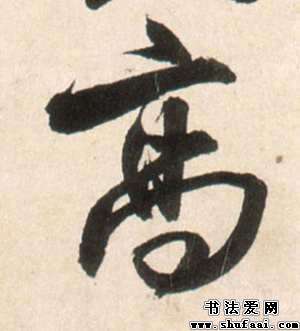 高
书法爱网
www.shufaai.com